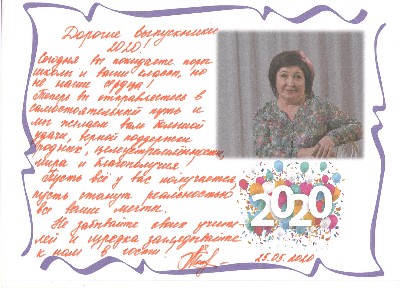 Дорогие выпускники
2020!
Сегодня Вы покидаете порог
школы и ваши классы, но
не наши сердца!
Теперь Вы отправляетесь в
самостоятельный путь и
мы желаем вам большой
удачи, верной поддержки
родных, целеустремлённости,
мира и благополучия!
Пусть всё у вас получается,
пусть станут реальностью
все ваши мечты.
Не забывайте своих учите-
лей и изредка заглядывайте
к нам в гости!
2020
25.05.2020